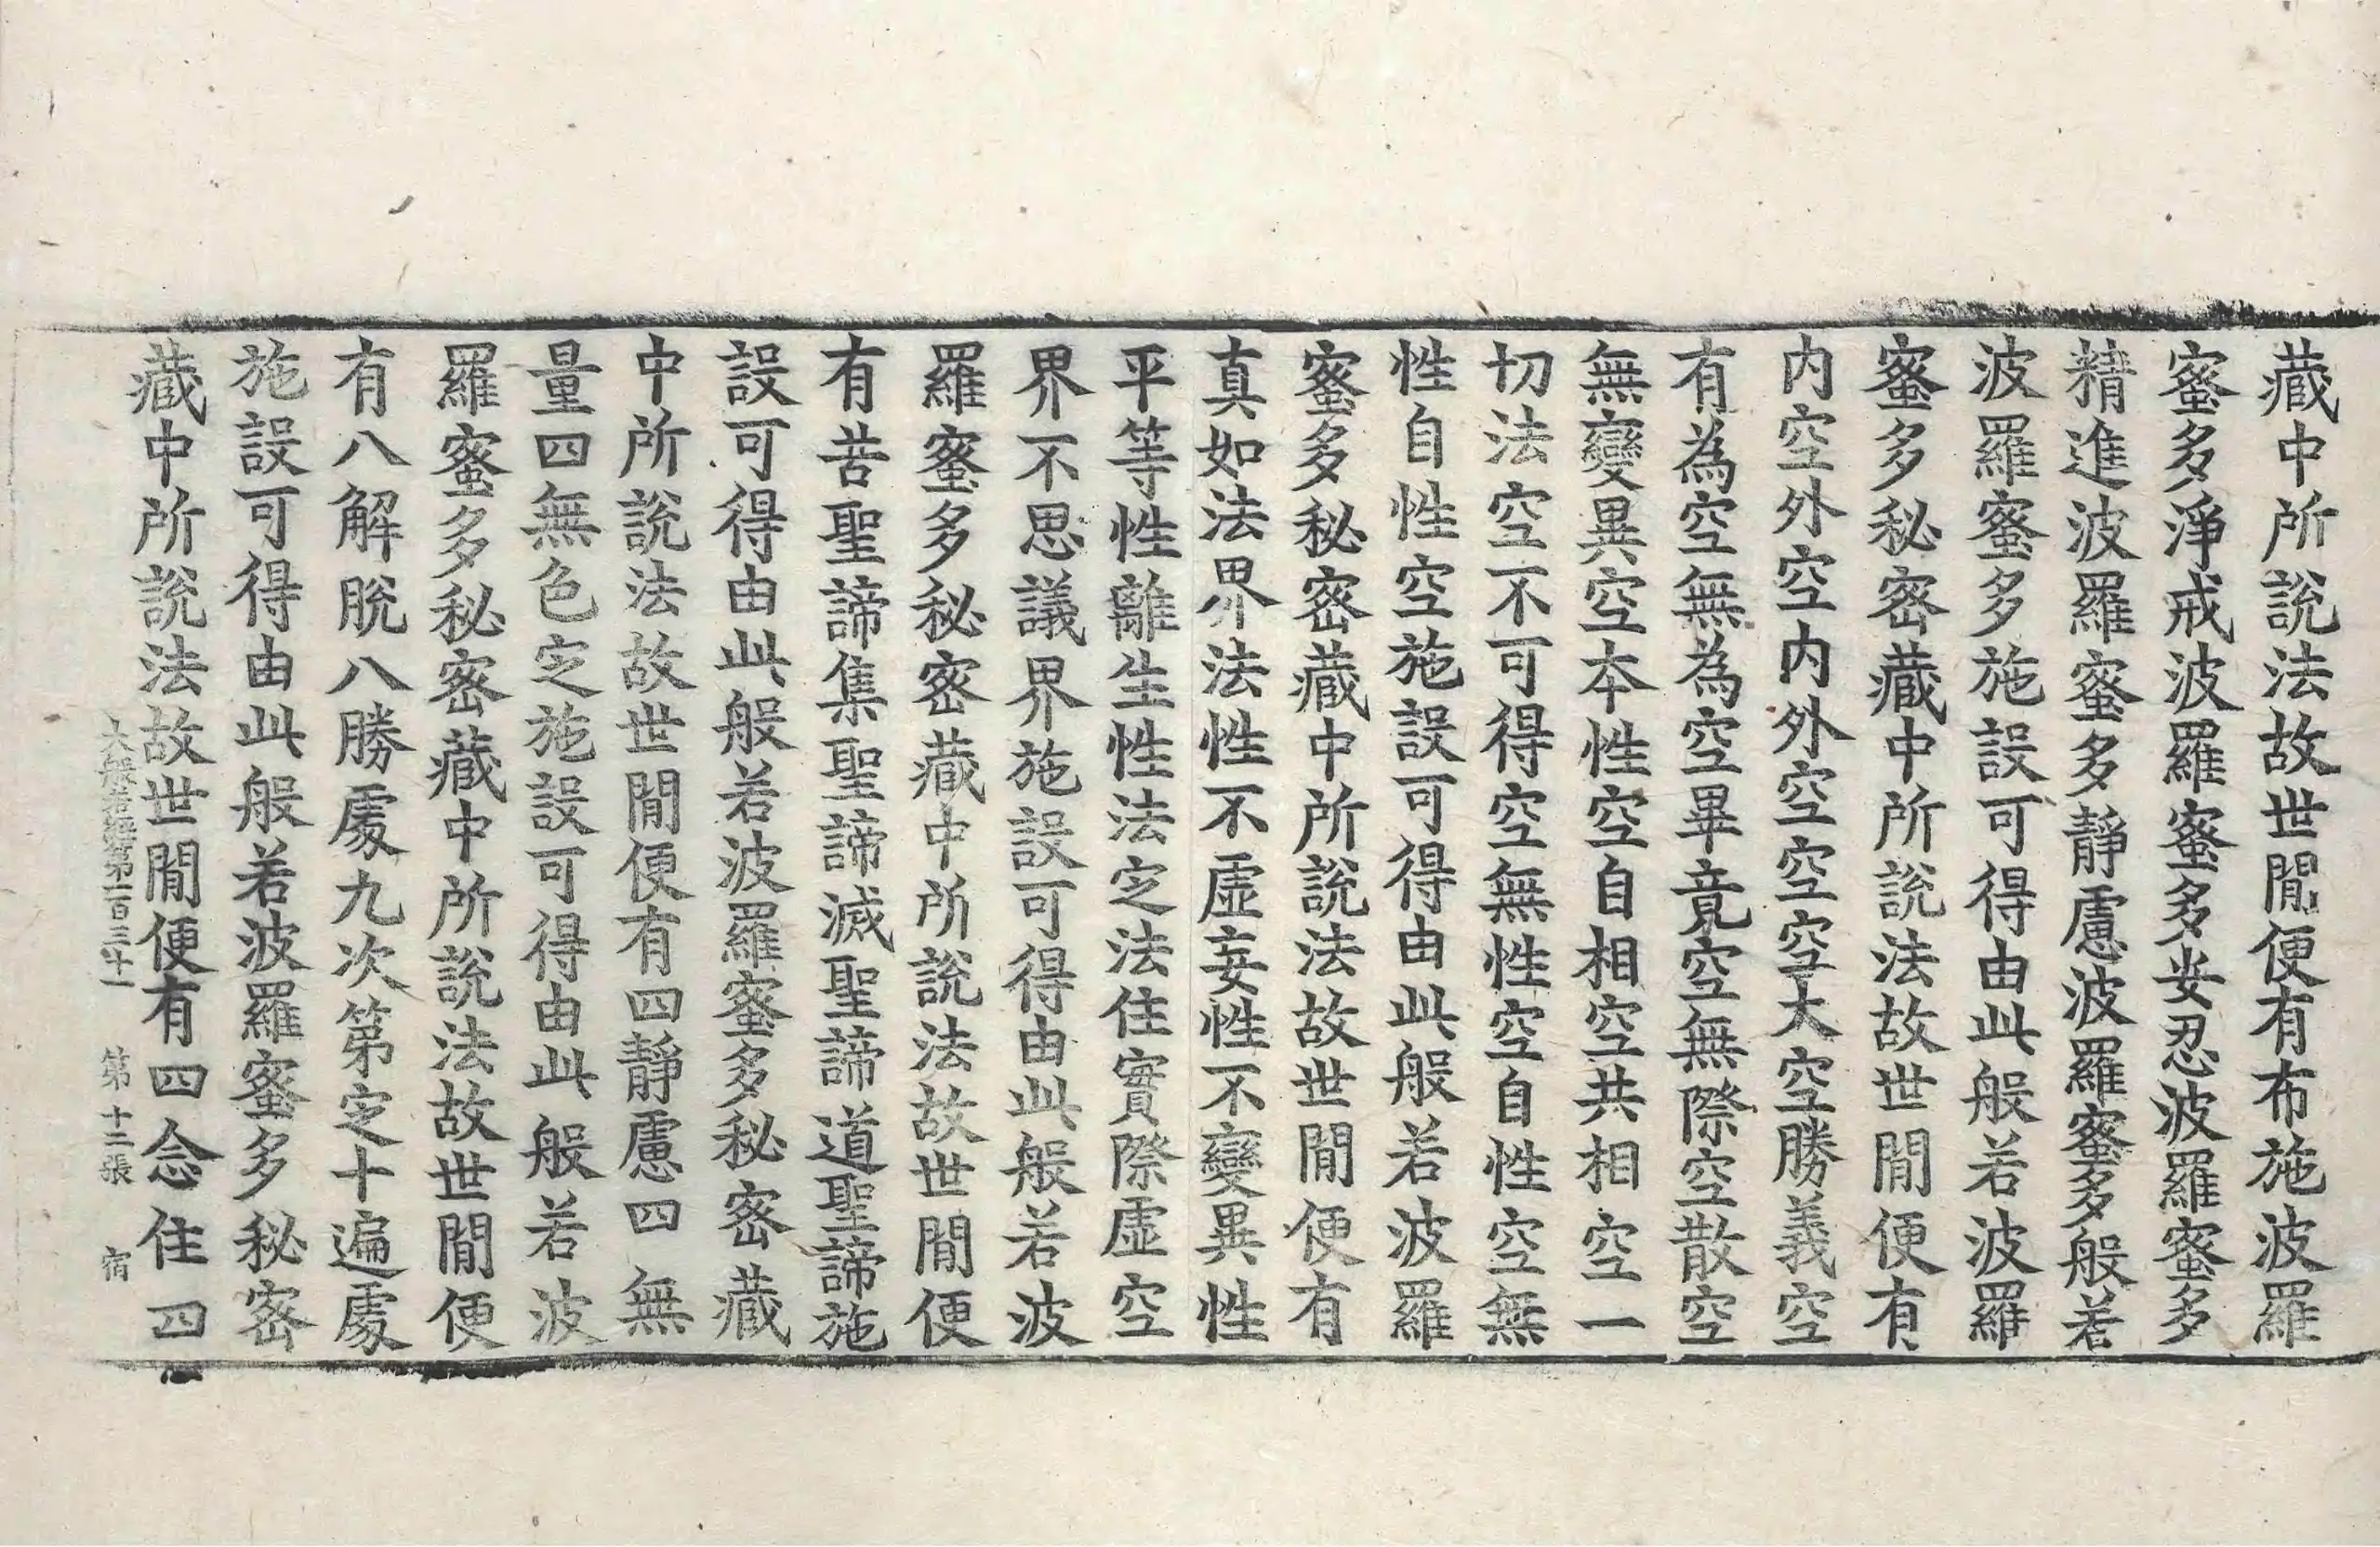 藏中所說法故世閒便有布施波羅
蜜多淨戒波羅蜜多安忍波羅蜜多
精進波羅蜜多靜慮波羅蜜多般若
波羅蜜多施設可得由此般若波羅
蜜多秘密藏中所說法故世閒便有
内空外空内外空空空大空勝義空
有為空無為空畢竟空無際空散空
無變異空本性空自相空共相空一
切法空不可得空無性空自性空無
性自性空施設可得由此般若波羅
蜜多秘密藏中所說法故世閒便有
真如法界法性不虛妄性不變異性
平等性離生性法定法住實際虛空
界不思議界施設可得由此般若波
羅蜜多秘密藏中所說法故世閒便
有苦聖諦集聖諦滅聖諦道聖諦施
設可得由此般若波羅蜜多秘密藏
中所說法故世閒便有四靜慮四無
量四無色定施設可得由此般若波
羅蜜多秘密藏中所說法故世閒便
有八解脫八勝處九次第定十遍處
施設可得由此般若波羅蜜多秘密
藏中所說法故世閒便有四念住四
大般若經第一百三十一 第十二張 宿